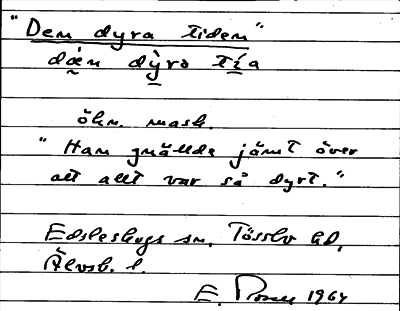 "Den dyra tiden"
dǽn dỳrə tía
ökn. mask.
"Han gnällde jämt över
att allt var så dyrt."
Edsleskogs sn, Tössbo hd,
Älvsb. l.
E. 1964